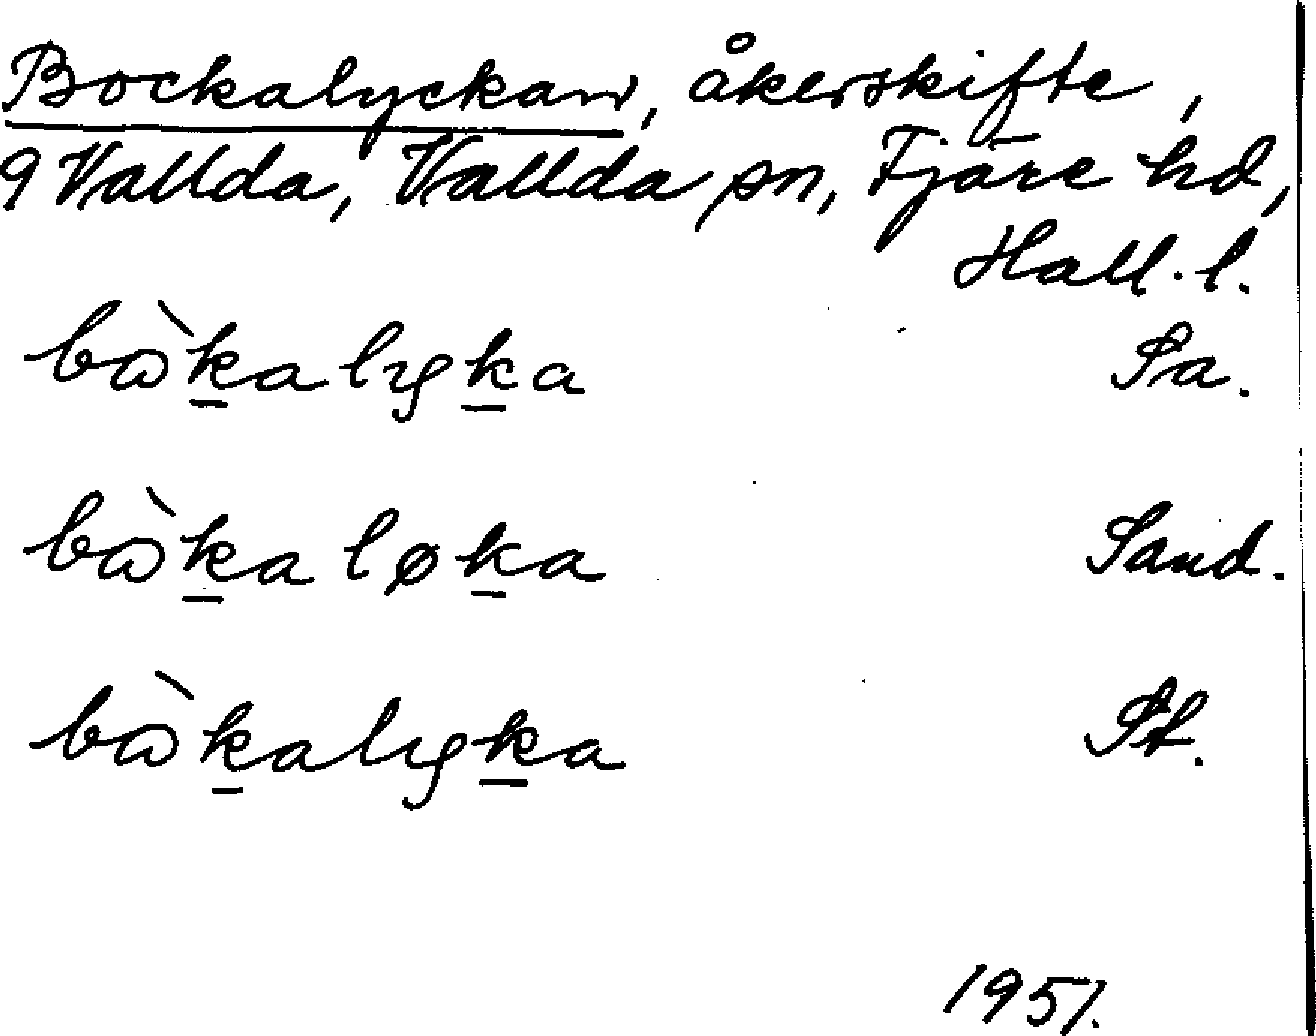 Bockalyckan, åkerskifte,
9 Vallda, Vallda sn, Fjäre hd,
Hall. l.
bɷ̀k̲alyk̲a Sa.
bɷ̀k̲aløk̲a Sand.
bɷ̀k̲alyk̲a St.
1951.